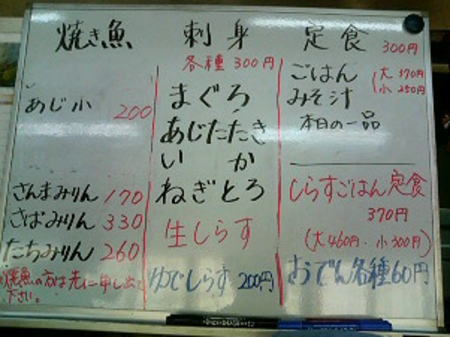 焼き魚
あじ小 200
さんまみりん 170
さばみりん 330
たちみりん 260
焼魚の方は先に申し出て
下さい。
刺身
各種300円
まぐろ
あじたたき
いか
ねぎとろ
生しらす
ゆでしらす 200円
定食 300円
ごはん (大370円
みそ汁 小250円
本日の一品
しらすごはん定食
370円
(大460円・小300円)
おでん各種60円